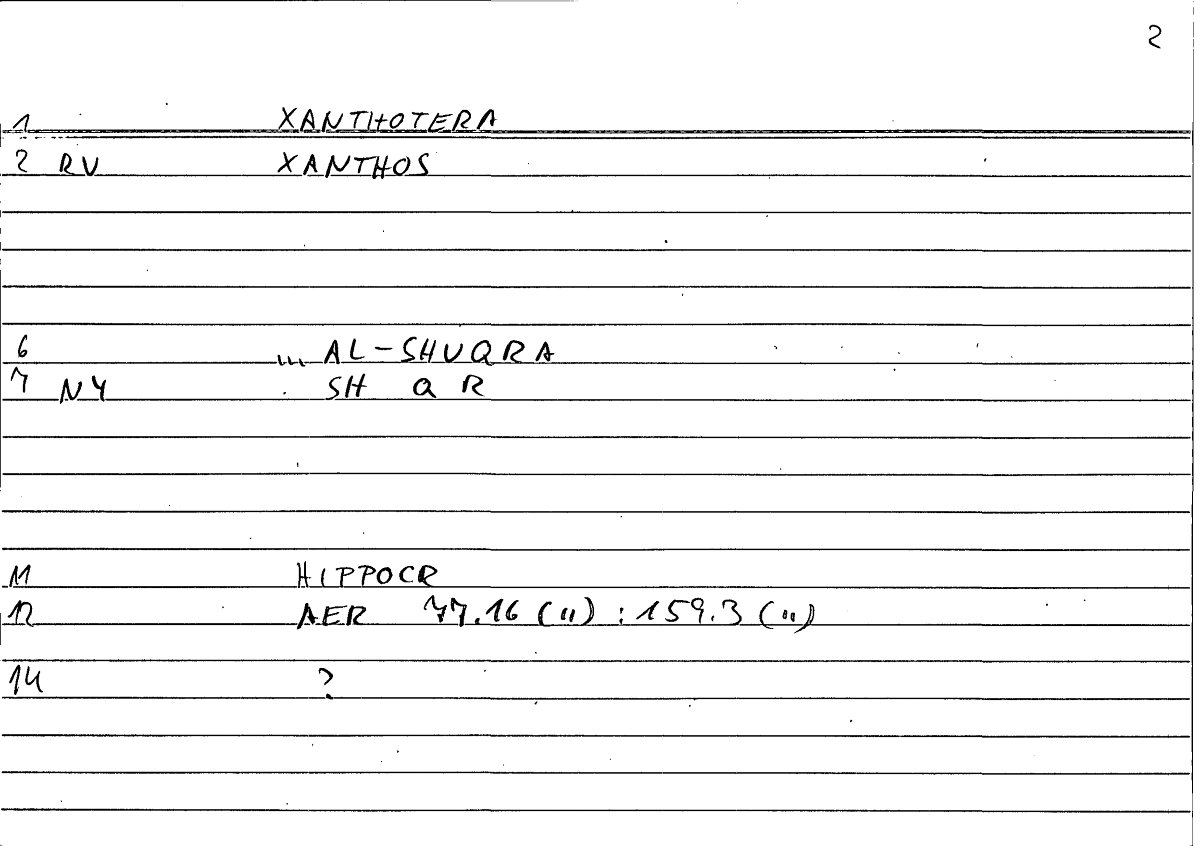 2
1 XANTHOTERA
2 RV XANTHOS
6 ... AL-SHUQRA
7 NY . SH Q R
11 HIPPOCR
12 AER 77.16 (") : 159.3 (")
14 ?